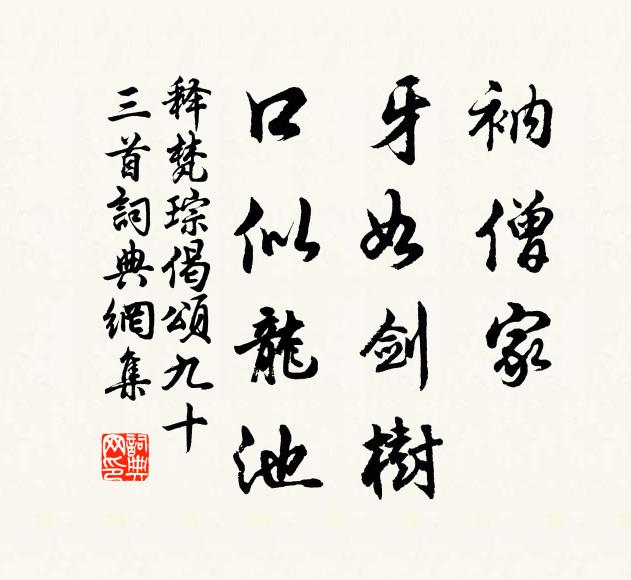 衲僧家
牙如剑樹
口似龍池
释梵琮偈頌九十
三首詞典網集
詞典網印